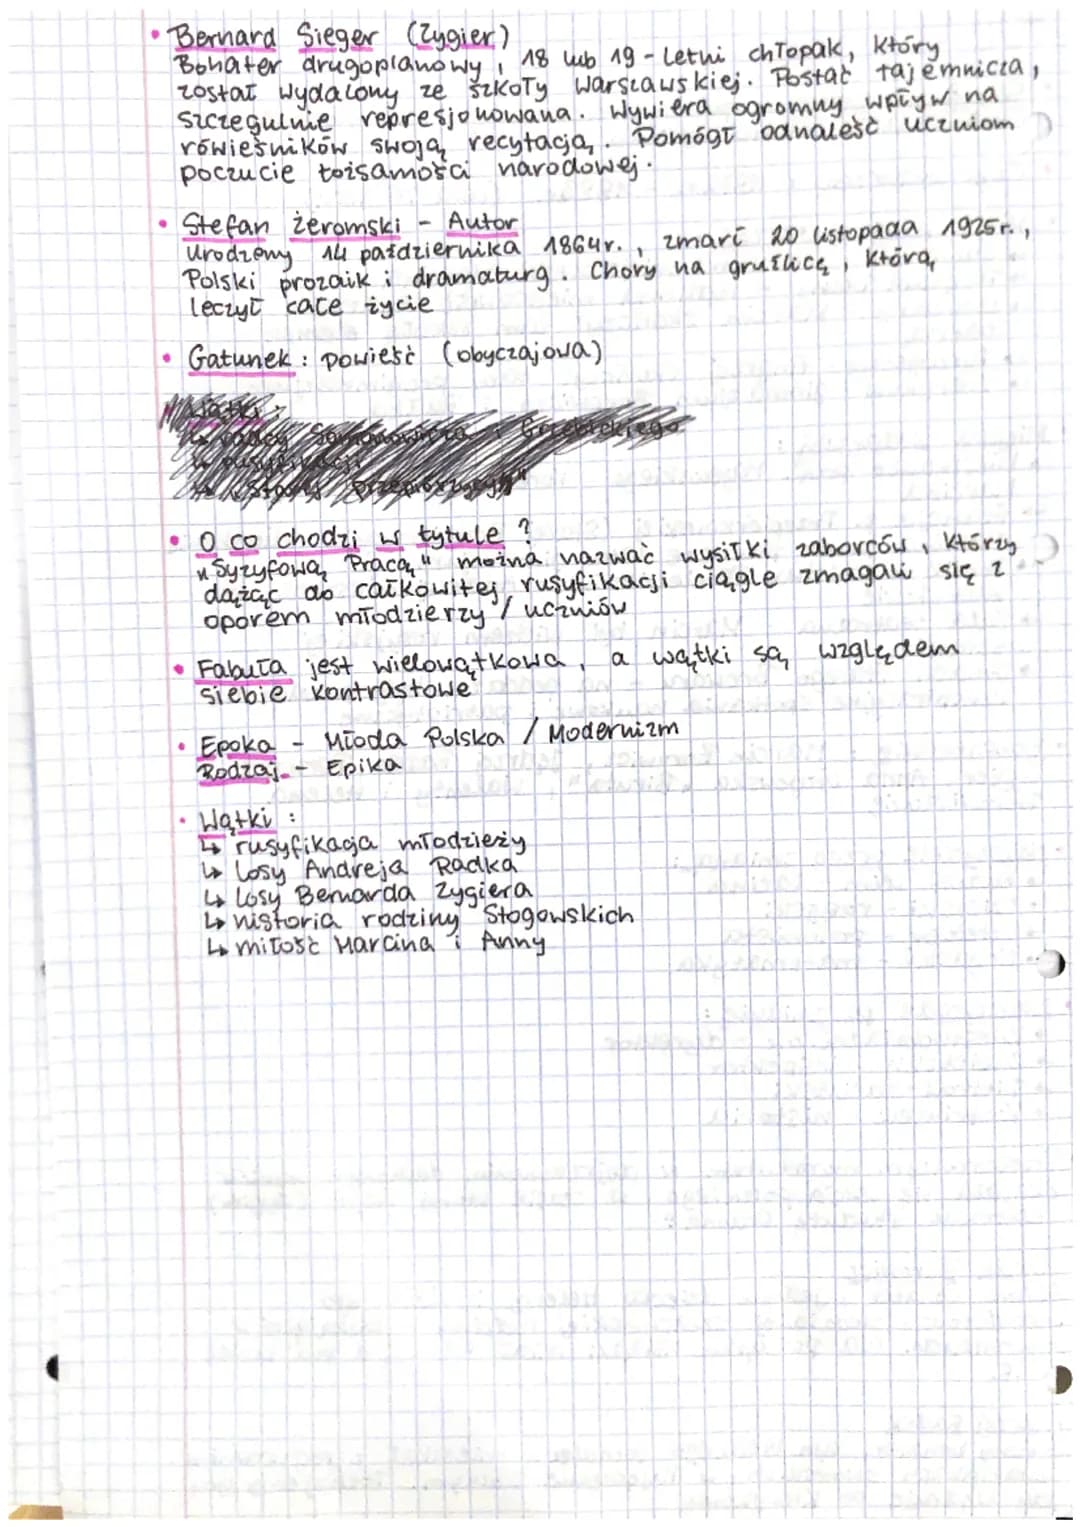 • Bernard Sieger (Zygier)
Bohater drugoplanowy, 18 lub 19-letni chłopak, który
został wydalony ze szkoły warszawskiej. Postać tajemnicza,
szczegulnie represjonowana. Wywiera ogromny wpływ na
rówieśników swoją recytacją. Pomógł odnaleść uczniom
poczucie tożsamości narodowej.
• Stefan Żeromski - Autor
Urodzony 14 października 1864r., zmarł 20 listopada 1925r.,
Polski prozaik i dramaturg. Chory na gruźlicę, którą
leczył całe życie
• Gatunek: powieść (obyczajowa)
• O co chodzi w tytule?
"Syzyfową Pracą" można nazwać wysiłki zaborców, którzy
dążąc do całkowitej rusyfikacji ciągle zmagali się z
oporem młodzierzy / uczniów
• Fabuła jest wielowątkowa, a wątki są względem
siebie kontrastowe
• Epoka - Młoda Polska / Modernizm
Rodzaj - Epika
• Wątki:
↳ rusyfikacja młodzieży
↳ losy Andreja Radka
↳ losy Bernarda Zygiera
↳ historia rodziny Stogowskich
↳ miłość Marcina i Anny